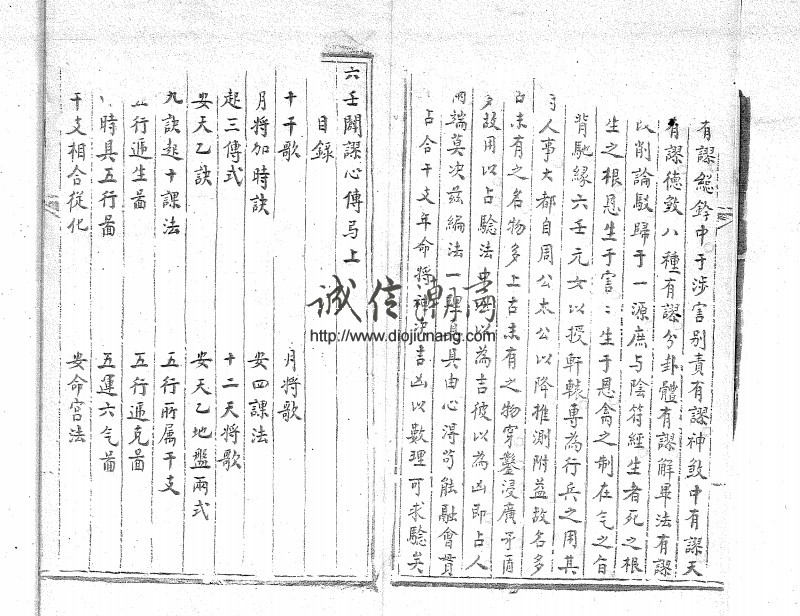 有謬鬆鈐中于涉害別責有謬神煞中有謬天
有謬德煞八種有謬分卦體有謬解畢法有謬
以削論駁歸于一源庶与陰符經生者死之根
生之根恩生于害：生于恩禽之制在气之旨
背馳緣六壬元女以授軒轅專為行兵之用其
人事大都自周公太公以降推測附益故名多
古未有之名物多上古未有之物穿鑿浸廣矛盾
故用以占驗法以為吉彼以為凶即占人
端莫决兹編法一理具其由心得苟能融會貫
占合干支年命將神决吉凶以數理可求驗矣
六壬闢謬心傳弓上
目錄
十干歌
月將歌
月將加時訣
安四課法
起三傳式
十二天將歌
安天乙訣
安天乙地盤兩式
九訣起十課法
五行所属干支
五行遁生啚
五行遁克啚
時具五行啚
五運六气啚
干支相合從化
安命宮法
诚信潮斋
http://www.diojiunang.com